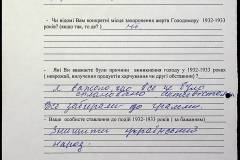 - Чи відомі Вам конкретні місця захоронення жертв Голодомору 1932-1933
років? (якщо так, то де?) ні.
- Які Ви вважаєте були причини виникнення голоду у 1932-1933 роках
( неврожай, вилучення продуктів харчування чи інші обставини?)
Я вважаю що все це було
сплановано
Все забирали до грамма.
- Ваше особисте ставлення до подій 1932-1933 років ( за бажанням)
Знищити український
народ.